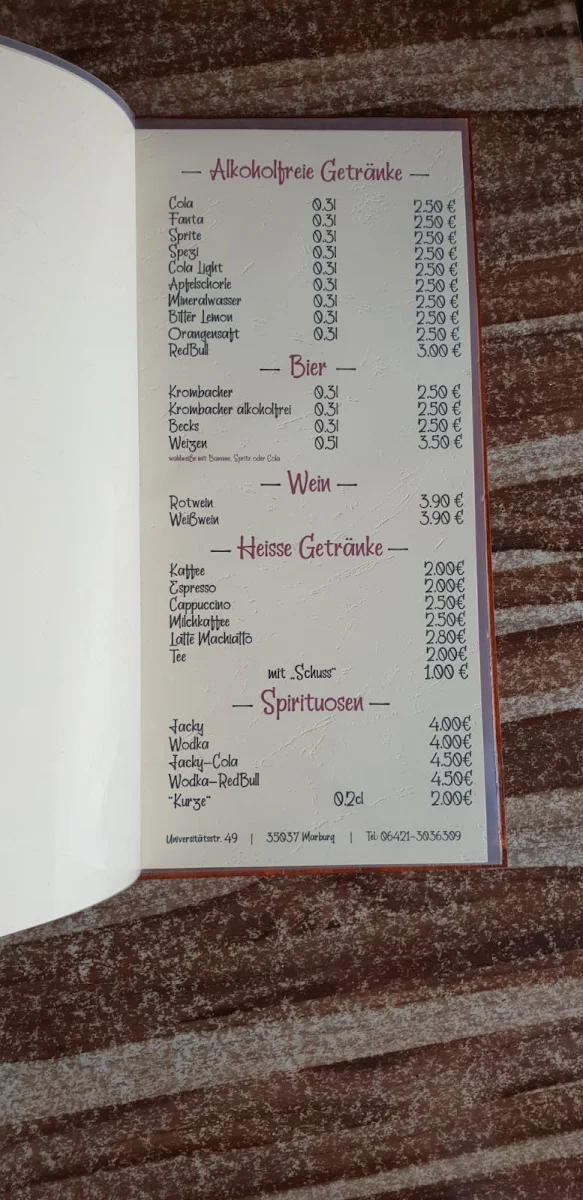 — Alkoholfreie Getränke —
Cola 0.3l 2.50 €
Fanta 0.3l 2.50 €
Sprite 0.3l 2.50 €
Spezi 0.3l 2.50 €
Cola Light 0.3l 2.50 €
Apfelschorle 0.3l 2.50 €
Mineralwasser 0.3l 2.50 €
Bitter Lemon 0.3l 2.50 €
Orangensaft 0.3l 2.50 €
RedBull 3.00 €
— Bier —
Krombacher 0.3l 2.50 €
Krombacher alkoholfrei 0.3l 2.50 €
Becks 0.3l 2.50 €
Weizen 0.5l 3.50 €
mit Banane, Sprite oder Cola
— Wein —
Rotwein 3.90 €
Weißwein 3.90 €
— Heisse Getränke —
Kaffee 2.00€
Espresso 2.00€
Cappuccino 2.50€
Milchkaffee 2.50€
Latte Machiatto 2.80€
Tee 2.00€
mit „Schuss“ 1.00 €
— Spirituosen —
Jacky 4.00€
Wodka 4.00€
Jacky-Cola 4.50€
Wodka-RedBull 4.50€
"Kurze" 0.2cl 2.00€
Universitätsstr. 49 | 35037 Marburg | Tel: 06421-3036309